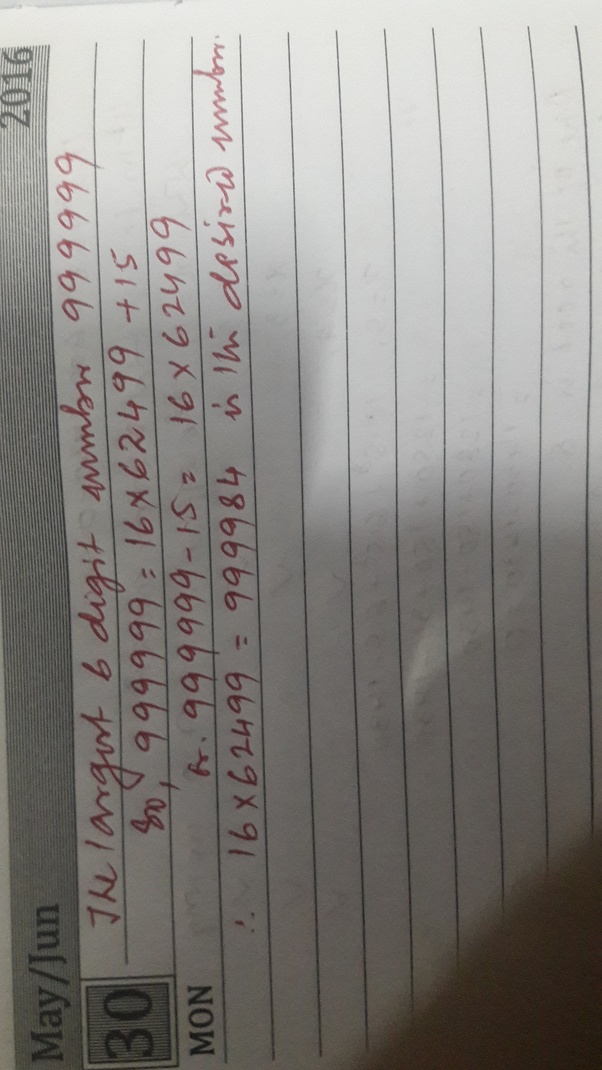 May/Jun 2016
30
MON
The largest 6 digit number 999999
So, 999999 = 16×62499 +15
or. 999999-15 = 16×62499
∴ 16×62499 = 999984 is the desired number.